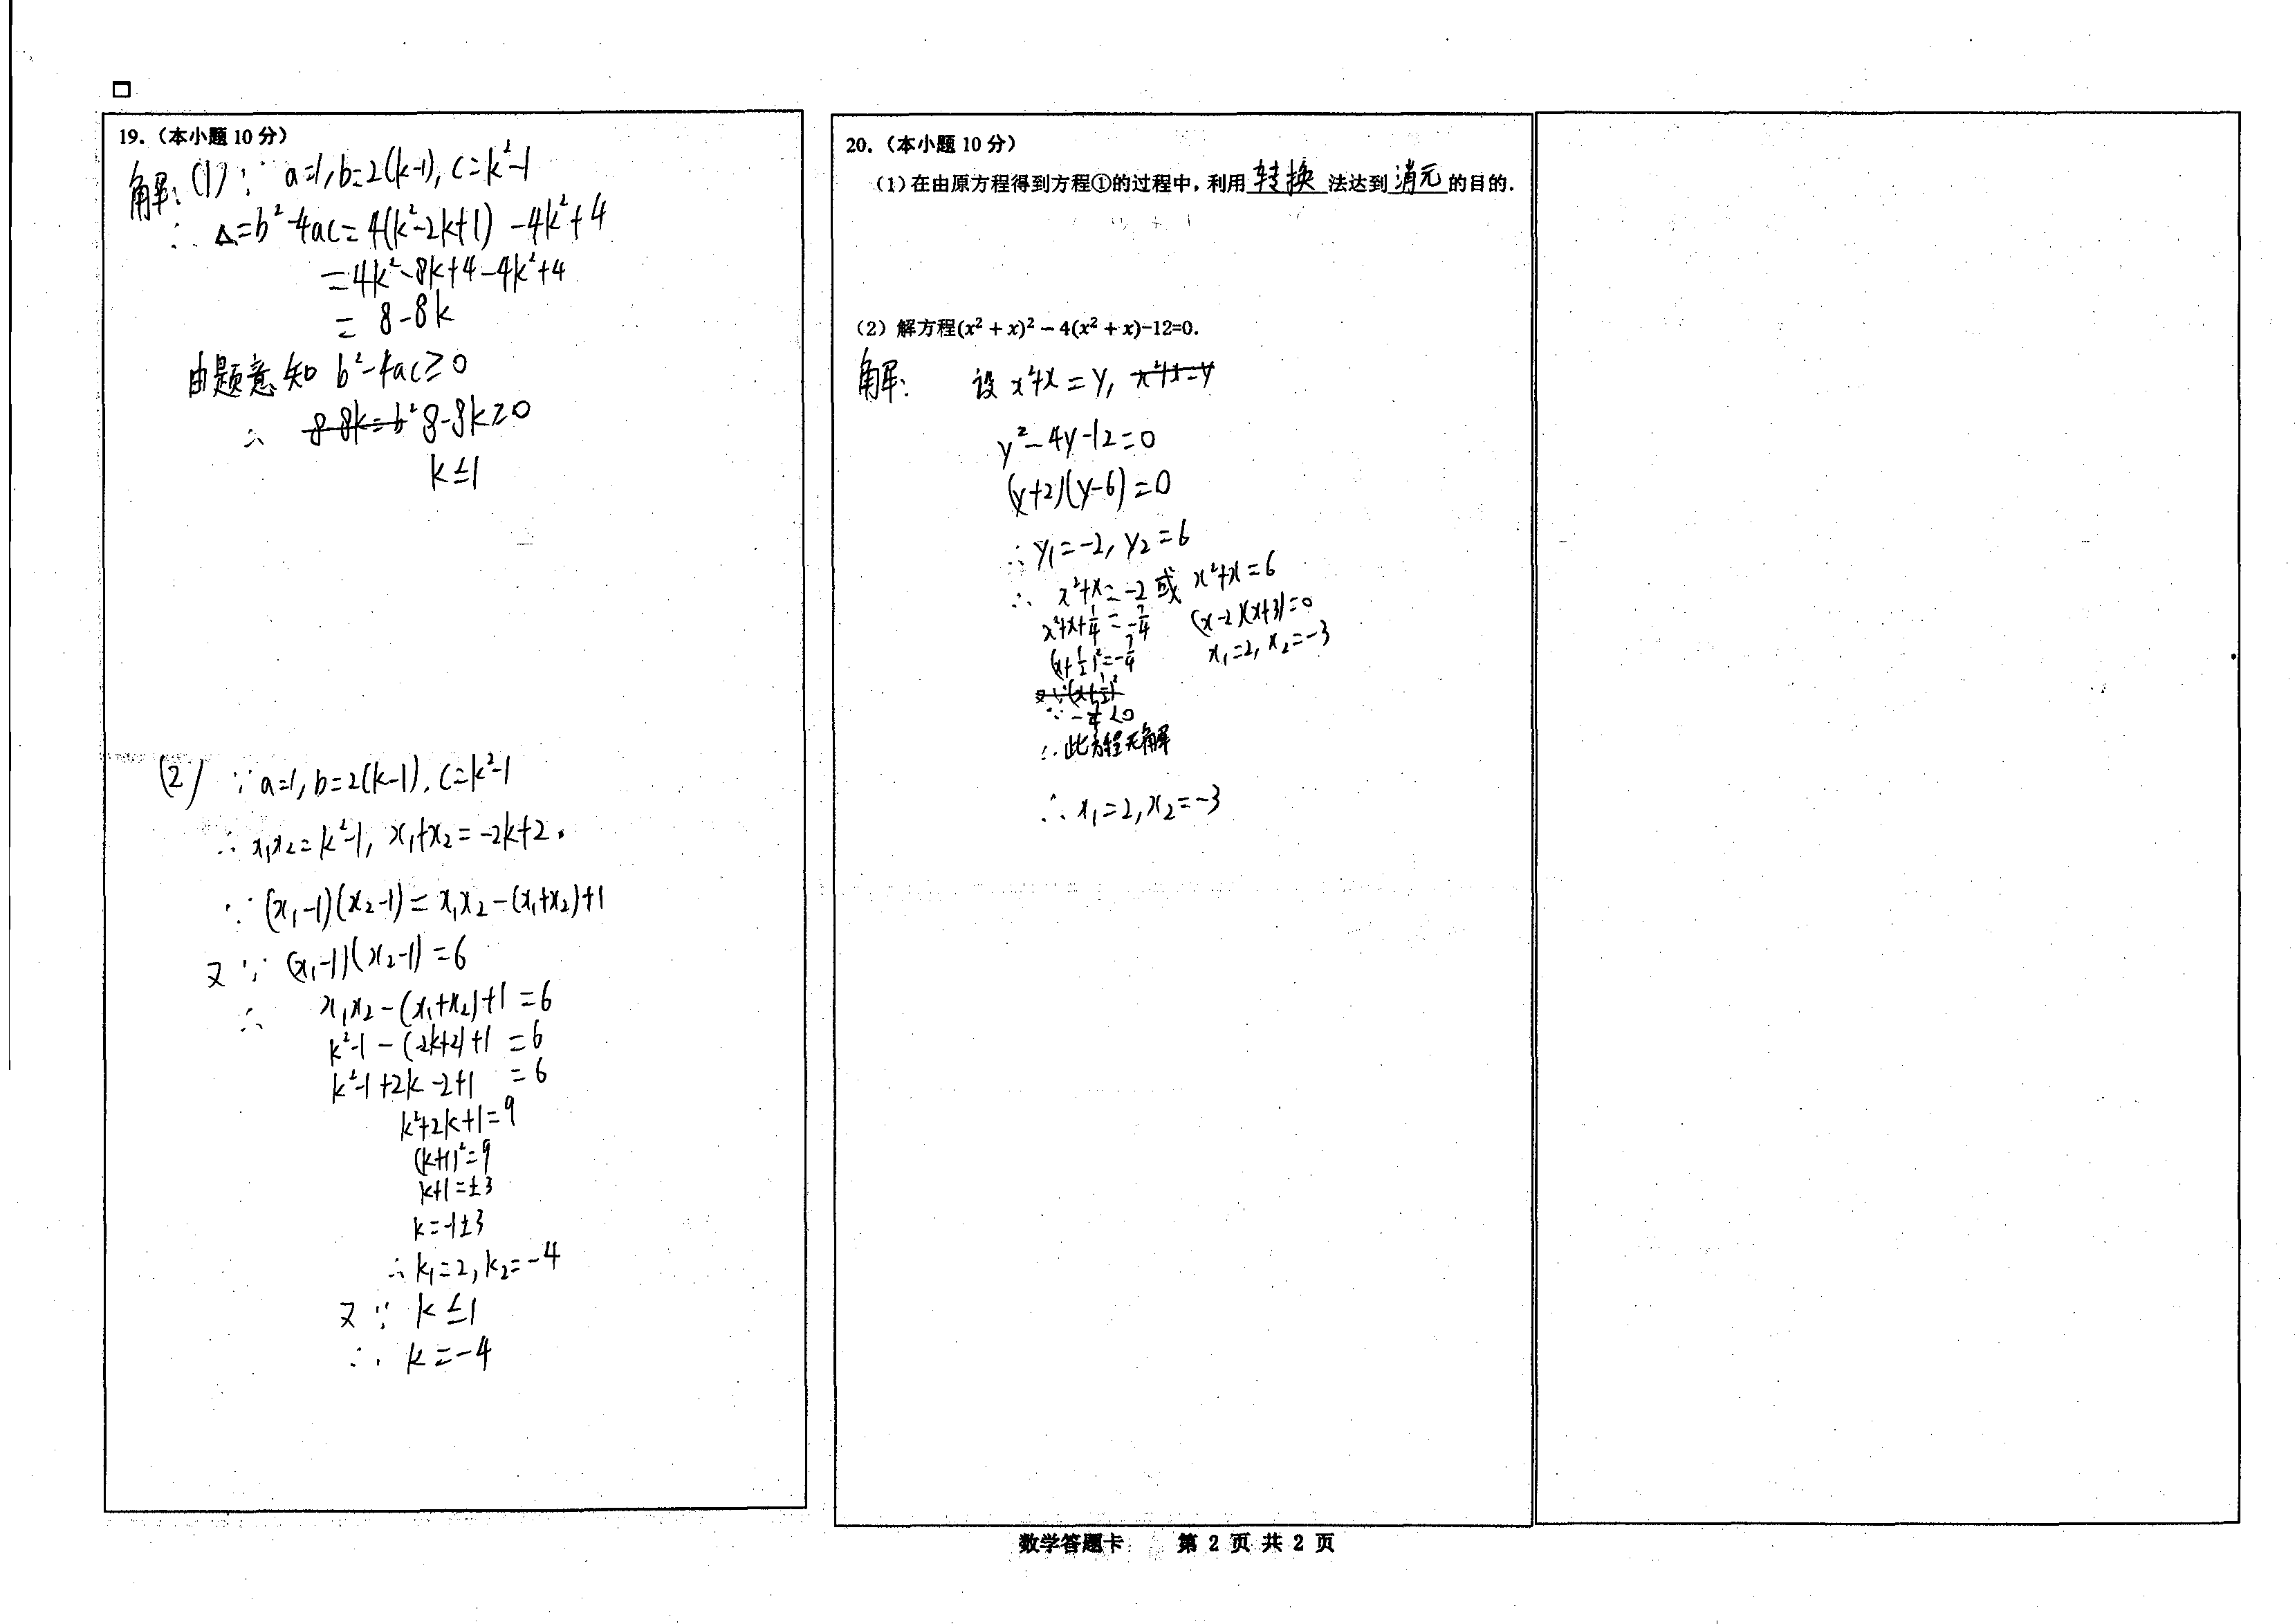 19.（本小题 10 分）
解: (1) ∵ a=1, b=2(k-1), c=k²-1
∴ Δ=b²-4ac=4(k²-2k+1) -4k²+4
=4k²-8k+4-4k²+4
= 8-8k
由题意知 b²-4ac≥0
∴ 8-8k=b² 8-8k≥0
k≤1
(2) ∵ a=1, b=2(k-1), c=k²-1
∴ x₁x₂=k²-1, x₁+x₂=-2k+2.
∵ (x₁-1)(x₂-1)=x₁x₂-(x₁+x₂)+1
又∵ (x₁-1)(x₂-1)=6
∴ x₁x₂-(x₁+x₂)+1=6
k²-1-(-2k+2)+1=6
k²-1+2k-2+1=6
k²+2k+1=9
(k+1)²=9
k+1=±3
k=-1±3
∴k₁=2, k₂=-4
又∵ k≤1
∴ k=-4
20.（本小题 10 分）
（1）在由原方程得到方程①的过程中，利用 转换 法达到 消元 的目的.
（2）解方程(x² + x)² − 4(x² + x)−12=0.
解: 设 x²+x=y, x²+x=y
y²-4y-12=0
(y+2)(y-6)=0
∴y₁=-2, y₂=6
∴ x²+x=-2 或 x²+x=6
x²+x+1/4=-7/4 (x-2)(x+3)=0
(x+1/2)²=-7/4 x₁=2, x₂=-3
又∵(x+1/2)²
∵-7/4<0
∴此方程无解
∴x₁=2, x₂=-3
数学答题卡 第 2 页 共 2 页